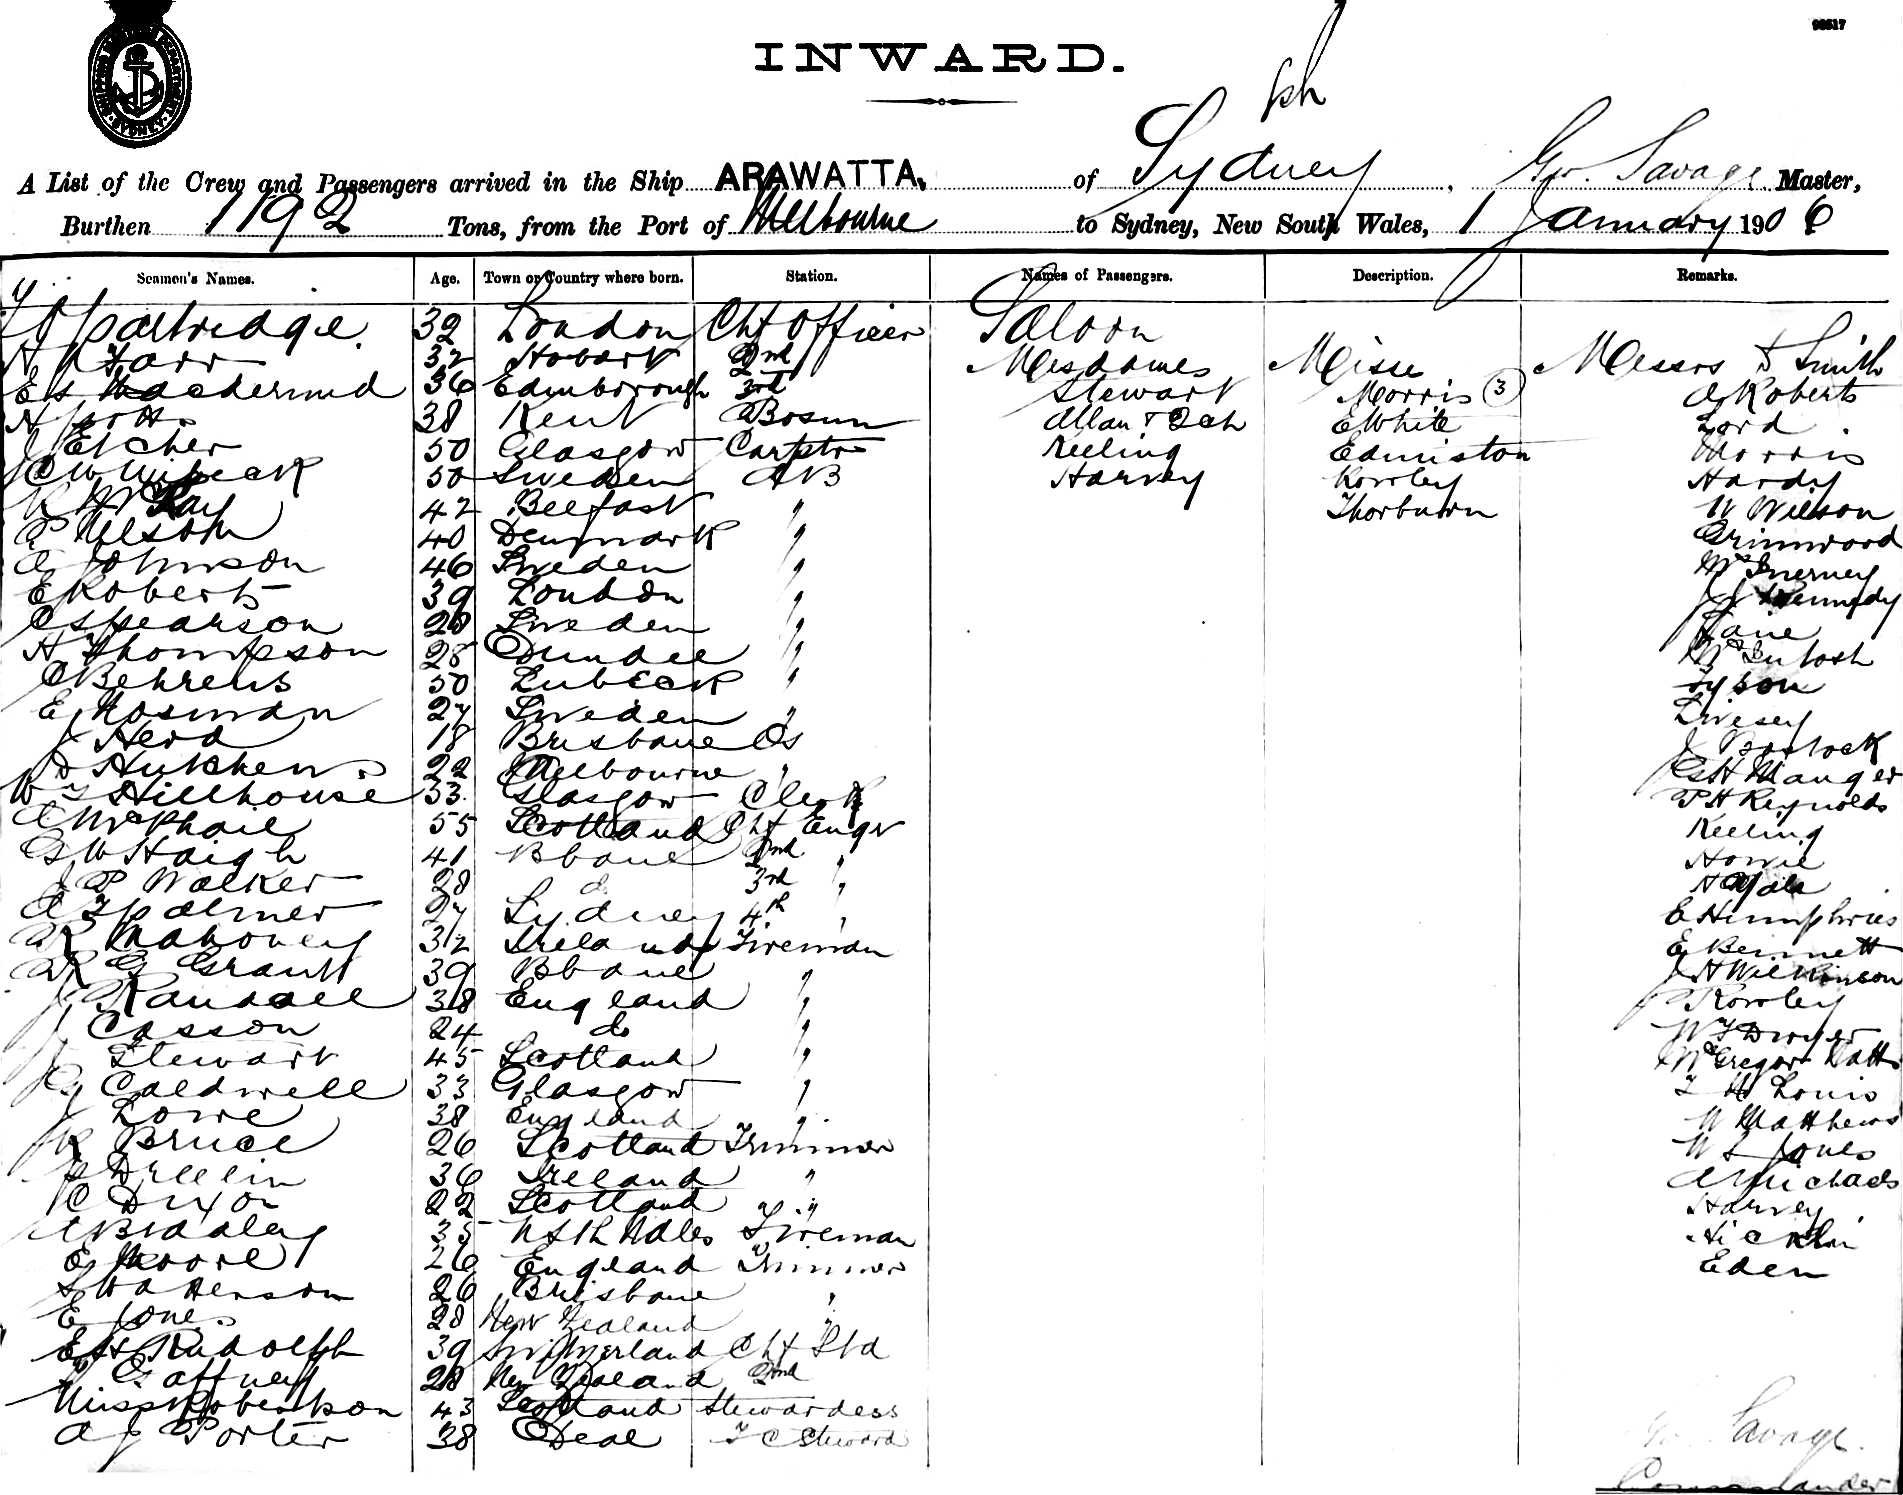 98517
INWARD.
SHIPPING MASTERS DEPARTMENT SYDNEY
A List of the Crew and Passengers arrived in the Ship ARAWATTA, of Sydney, Geo. Savage Master,
Burthen 1192 Tons, from the Port of Melbourne to Sydney, New South Wales, 1 January 1906
Seamen's Names. Age. Town or Country where born. Station. Names of Passengers. Description. Remarks.
Partridge 39 London Chf Officer Saloon
Farr 32 Hobart 2nd Mesdames Misses Messrs Smith
E S MacDermid 36 Edinborough 3rd Stewart Morris (3) A Roberts
38 Kent Bosun Allan & Bch E White Lord
J Etcher 50 Glasgow Carptr Keeling Edmiston Morris
C W Wibeck 50 Sweden AB Harvey Rowley Hardy
McKay 42 Belfast " Thorburn W Wilson
P Nelson 40 Denmark " Grimwood
A Johnson 46 Sweden " McInerney
E Roberts 39 London " J J Kennedy
C Spearson 28 Sweden " Laine
H Thompson 28 Dundee " McIntosh
C Behrens 50 Lubeck " Tyson
E Nosman 27 Sweden " Livesey
J Herd 18 Brisbane OS J Bostock
D Hutchens 22 Melbourne " G H Manger
W S Hillhouse 33 Glasgow Clerk P H Reynolds
A McPhail 55 Scotland Chf Engr Keeling
G W Haigh 41 Bbane 2nd " Howie
J P Walker 28 do 3rd " H Yale
A F Palmer 27 Sydney 4th " E Humphries
R Mahoney 32 Ireland Fireman E Bennett
R G Grant 39 Bbane " J H Wilkinson
J Randall 38 England " Rowley
J Casson 24 do " W F Dwyer
J Stewart 45 Scotland " McGregor Watt
J G Caldwell 33 Glasgow " L H Louis
J Lowe 38 England " W Matthews
R Bruce 26 Scotland Trimmer W L Jones
J Dillin 36 Ireland " A Michaels
R Dixon 22 Scotland " Harvey
A Bradley 35 N Sth Wales Fireman Nicklin
E Moore 26 England Trimmer Eden
S Watterson 26 Brisbane "
E Jones 28 New Zealand "
E H Rudolph 39 Switzerland Chf Std
Gaffney 28 New Zealand 2nd
Miss Robertson 43 Scotland Stewardess
A J Porter 38 Deal F C Steward
Geo Savage
Commander